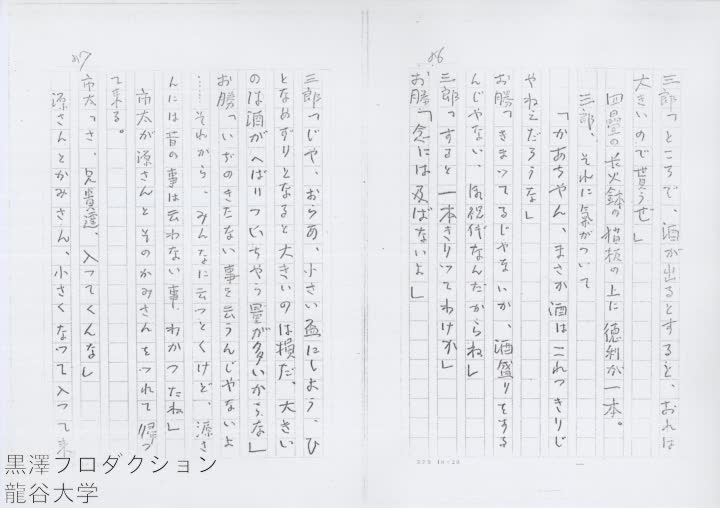 26
三郎「ところで、酒が出るとすると、おれは
大きいので貰うぜ」
四畳の長火鉢の猫板の上に徳利が一本。
三郎、それに気がついて
「かあちゃん、まさか酒はこれっきりじ
やねえだろうな」
お勝「きまってるじゃないか、酒盛りをする
んじゃない、御祝儀なんだからね」
三郎「すると一本きりってわけか」
お勝「念には及ばないよ」
27
三郎「じゃ、おらあ、小さい盃にしよう、ひ
となめずりとなると大きいのは損だ、大きい
のは酒がへばりついちゃう量が多いからな」
お勝「いぢのきたない事を云うんじゃないよ
……それから、みんなに云っとくけど、源さ
んには昔の事は云わない事、わかったね」
市太が源さんとそのかみさんをつれて帰っ
て来る。
市太「さ、兄貴達、入ってくんな」
源さんとかみさん、小さくなって入って来
黒澤プロダクション
龍谷大学